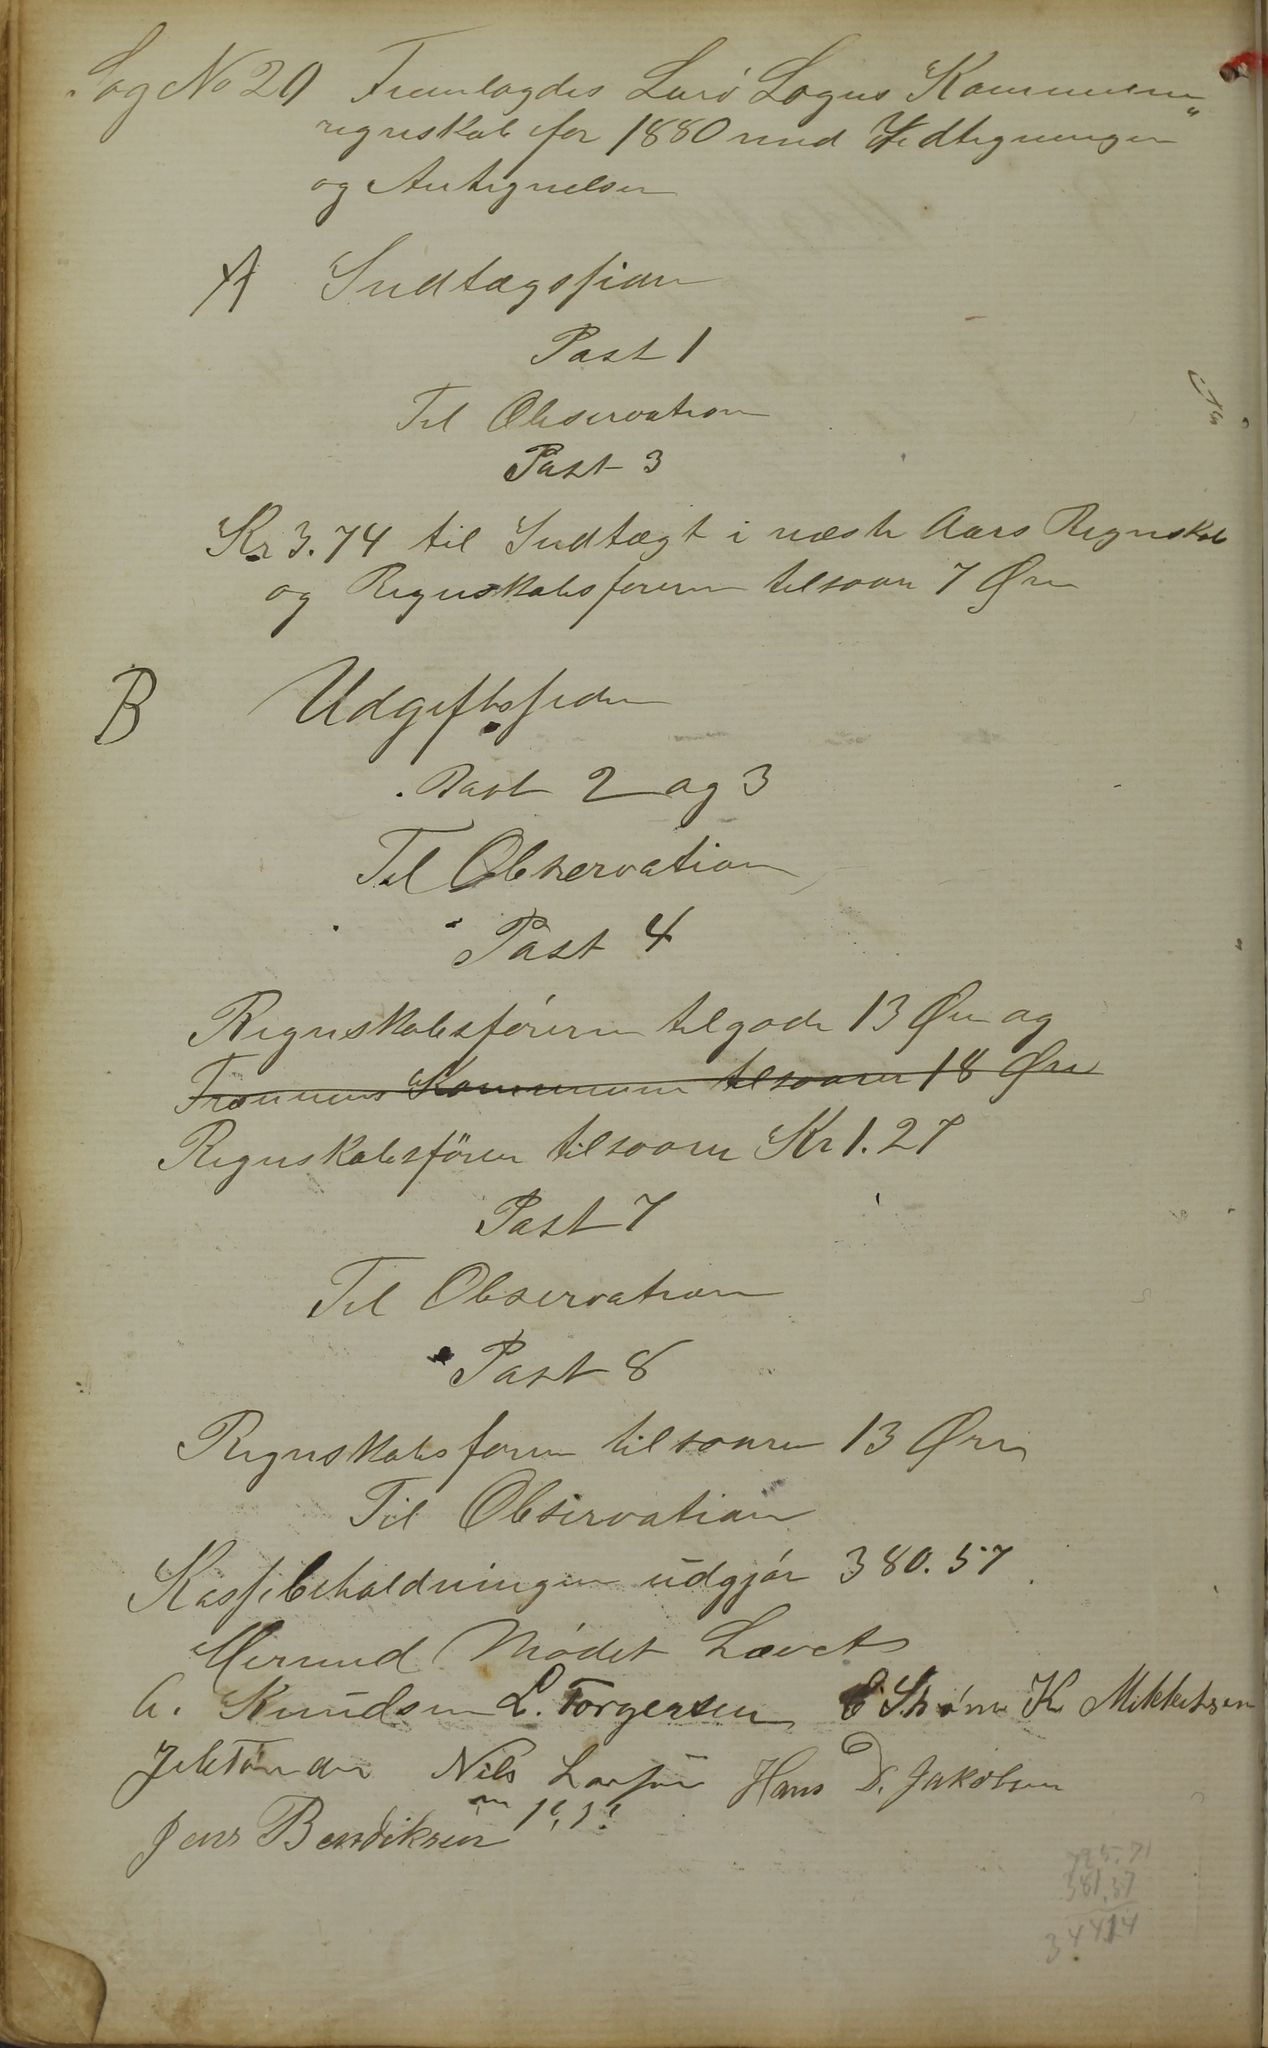 Sag No 20 Fremlagdes Lurö Sogns Kommune„
regnskab for 1880 med Vedtegninger
og Antegnelser
A Indtægtssiden
Post 1
Til Observation
Post 3
Kr 3.74 til Indtægt i næste Aars Regnskab
og Regnskabsføreren tilsvar 7 Øre
B Udgiftssiden
Post 2 og 3
Til Observation
Post 4
Regnskabsføreren tilgode 13 Øre og
Kommune tilsvarer 18 Øre
Regnskabsfører tilsvarer Kr 1.27
Post 7
Til Observation
Post 8
Regnskabsføren tilsvarer 13 Øre
Til Observation
Kassebeholdningen udgjør 380.57
Hermed Mødet Hævet
A. Knudsen L. Torgersen C Strøm K. Mikkelsen
J. Nils Larsen Hans D. Jakobsen
Jens Bendiksen
725.71
381.57
344 14